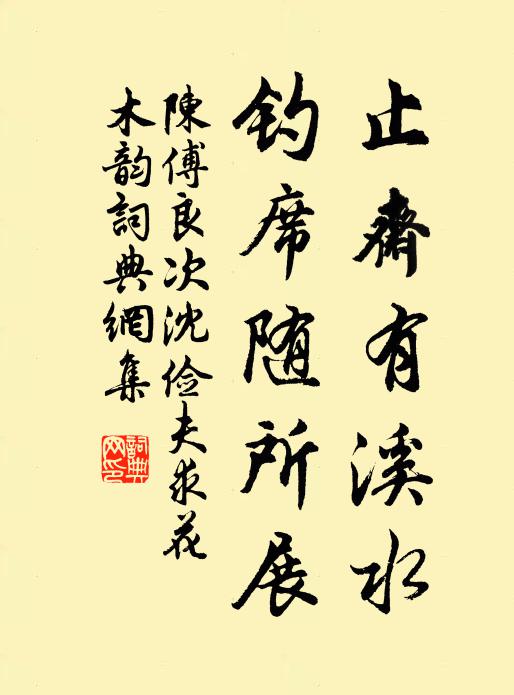 止齋有溪水
钓席随所展
陳傅良次沈俭夫求花
木韵詞典網集
詞典
网印